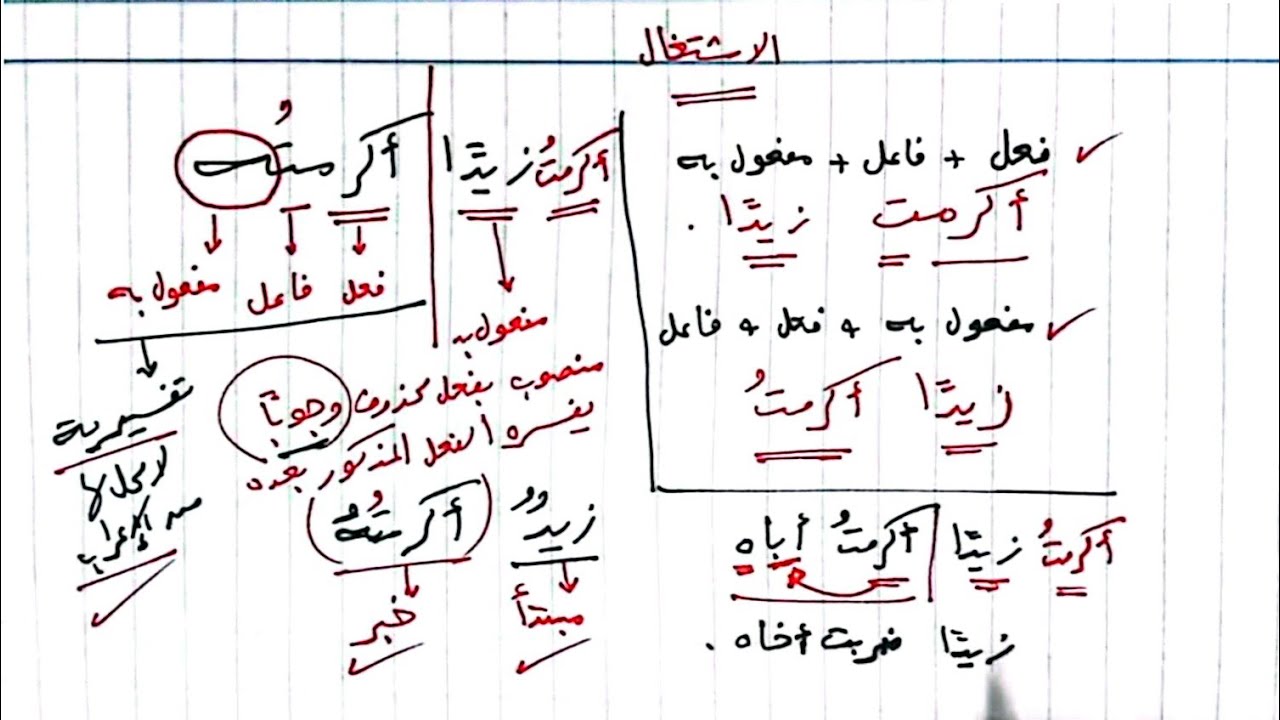 الاشتغال
فعل + فاعل + مفعول به
أكرمت زيدًا .
مفعول به + فعل + فاعل
زيدًا أكرمتُ
أكرمتُ زيدًا أكرمتُه
مفعول به
فعل فاعل مفعول به
منصوب بفعل محذوف وجوبًا
يفسره الفعل المذكور بعده
تفسيرية
لا محل لها
من الإعراب
زيدٌ (أكرمتُهُ)
مبتدأ خبر
أكرمتُ زيدًا أكرمتُ أباه
زيدًا ضربت أخاه .